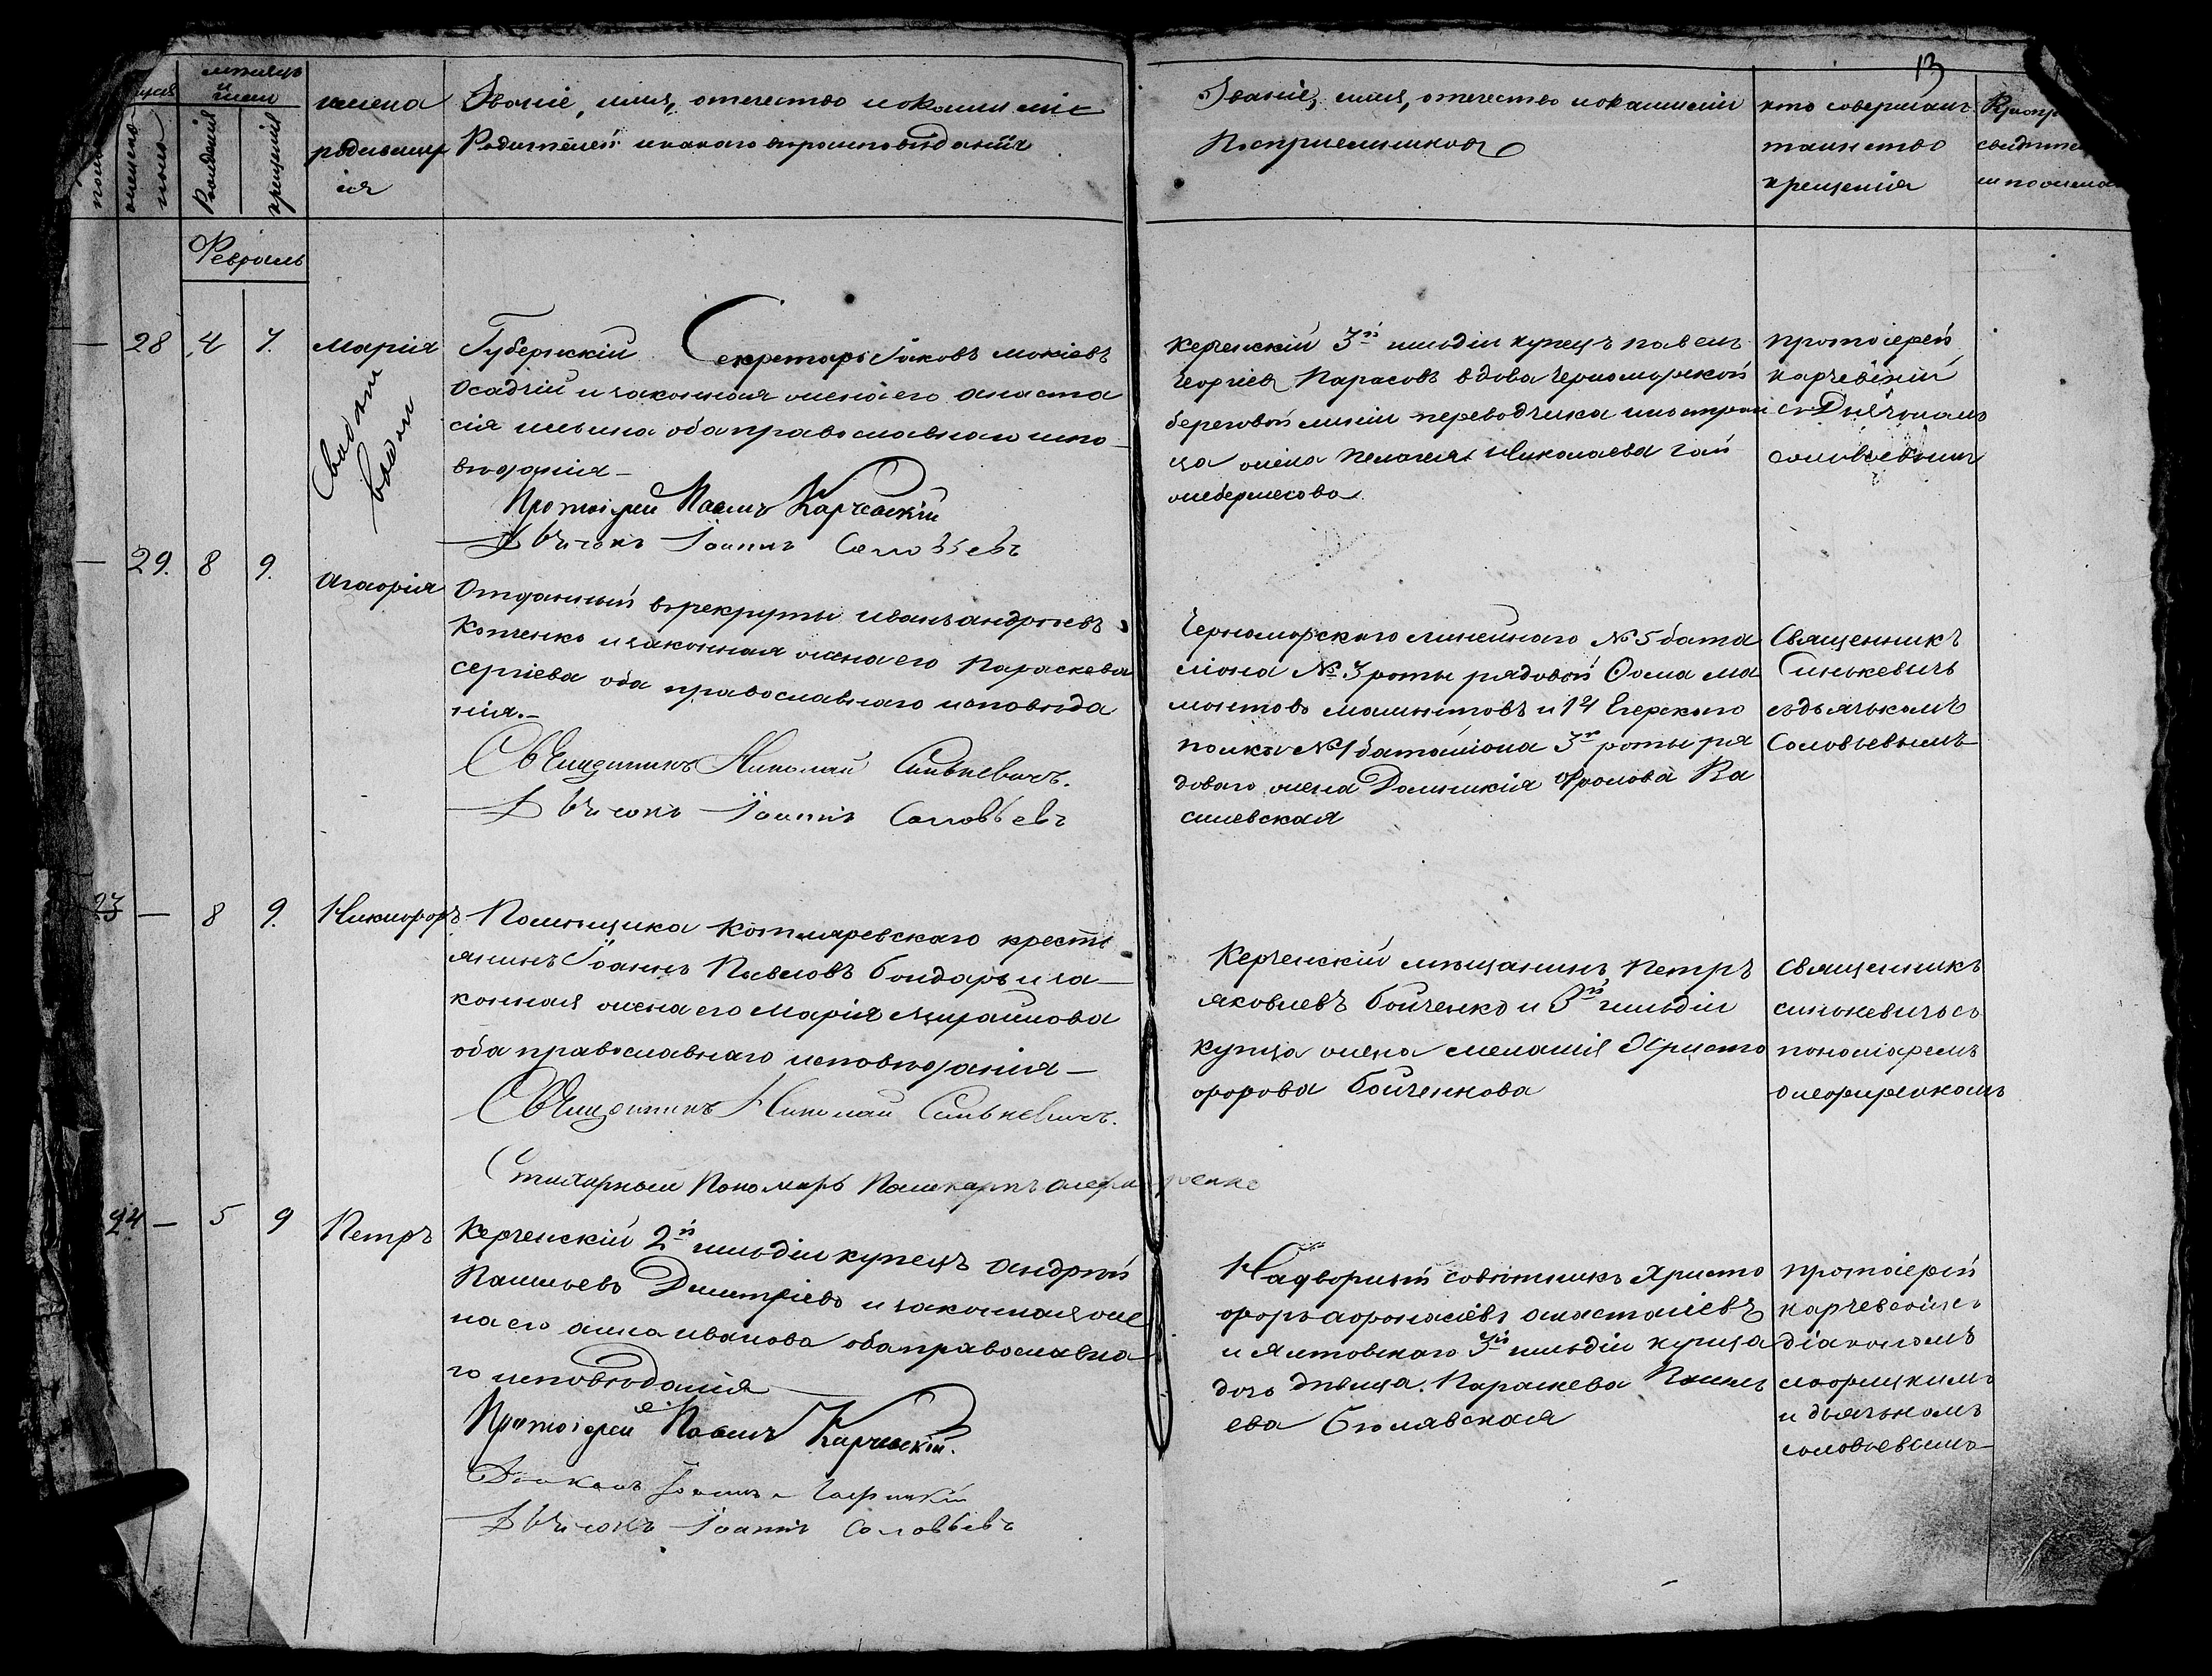 13
мѣсяцъ
и
число
женска
пола
Рожденія
крещенія
имена
родивших
ся
Званіе, имя, отечество и фамиліе
Родителей и какого вѣроисповѣданія
Званіе, имя, отечество и фамиліи
Воспріемниковъ
кто совершалъ
таинство
крещенія
Февраль
— 28 4 7. Марія
Губернскій Секретарь Іаковъ Мокіевъ
Осадчій и законная жена его Анаста
сія Ильина оба православнаго испо
вѣданія —
Протоіерей Павелъ Карчевскій
Дьячокъ Іоаннъ Соловьевъ
Керченскій 3й гильдіи купецъ Павелъ
Георгіев Парасовъ вдова Черноморской
береговой линіи переводчика иностран
ца жена Пелагея Николаева
протоіерей
карчевскій
съ Дьячкомъ
соловьевымъ
— 29. 8 9. Агафія
Отданный въ рекруты Иванъ Андреевъ
Котченко и законная жена его Параскева
Сергіева оба православнаго исповѣда
нія. —
Священникъ Николай Синькевичъ.
Дьячокъ Іоаннъ Соловьевъ
Черноморскаго линейнаго № 5 бата
ліона № 3 роты рядовой Фома Ма
монтовъ и 14 Егерскаго
полка № 1 баталіона 3й роты ря
доваго жена Домникія Фролова Ва
силевская
Священникъ
Синькевичъ
съ дьячкомъ
Соловьевымъ
23 — 8 9. Никифоръ
Помѣщика Котляревскаго кресть
янинъ Іоаннъ Павловъ Бондарь и за—
конная жена его Марія
оба православнаго исповѣданія —
Священникъ Николай Синькевичъ.
Стихарный Пономарь Поликарпъ
Керченскій мѣщанинъ Петръ
Яковлевъ Бойченко и 3й гильдіи
купца жена Меланія Христо
форова Бойченкова
священникъ
синькевичъ съ
пономаремъ
24 — 5 9 Петръ
Керченскій 2й гильдіи купецъ Андрей
Дмитріевъ и законная же
на его Анна Иванова оба православна
го исповѣданія —
Протоіерей Павелъ Карчевскій.
Діаконъ Іоаннъ
Дьячокъ Іоаннъ Соловьевъ
Надворный совѣтникъ Христо
форъ Афонасіевъ Анастасіевъ
и Ялтовскаго 3й гильдіи купца
дочь дѣвица Параскева
ева Бѣлявская
протоіерей
карчевскій съ
діакономъ
и дьячкомъ
соловьевымъ —